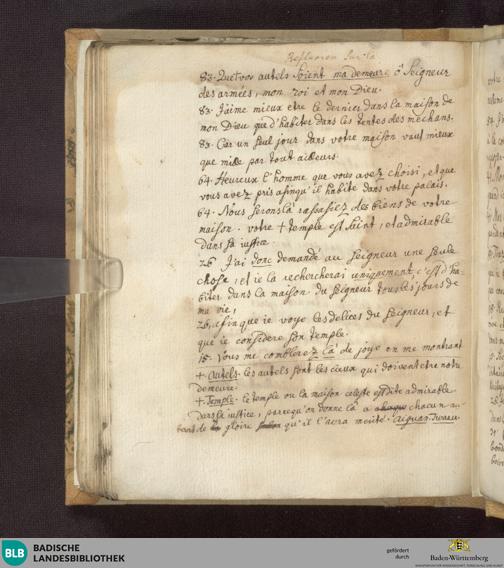 Reflexion Sur la
83. Que vos autels soient ma demeure ô Seigneur
des armées, mon roi et mon Dieu.
83. J'aime mieux etre le dernier dans la maison de
mon Dieu que d'habiter dans les tentes des mechans.
83. Car un seul jour dans votre maison vaut mieux
que mille par tout ailleurs.
64. Heureux l'homme que vous avez choisi, et que
vous avez pris afin qu'il habite dans votre palais.
64. Nous serons là rassasiez des biens de votre
maison: votre + temple est Saint, et admirable
dans sa justice.
26 J'ai donc demandé au Seigneur une seule
chose, et je la rechercherai uniquement, c'est d'ha-
biter dans la maison du Seigneur tous les jours de
ma vie,
26, afin que je voye les delices du Seigneur, et
que je considere son temple.
15. Vous me comblerez là de joye en me montrant
+ Autels. les autels sont les cieux qui doivent etre notre
demeure.
+ Temple. le temple ou la maison celeste est dite admirable
dans la justice, parcequ'on donne là a chacun au-
tant de gloire qu'il l'aura merité.
BLB BADISCHE
LANDESBIBLIOTHEK
gefördert
durch
Baden-Württemberg